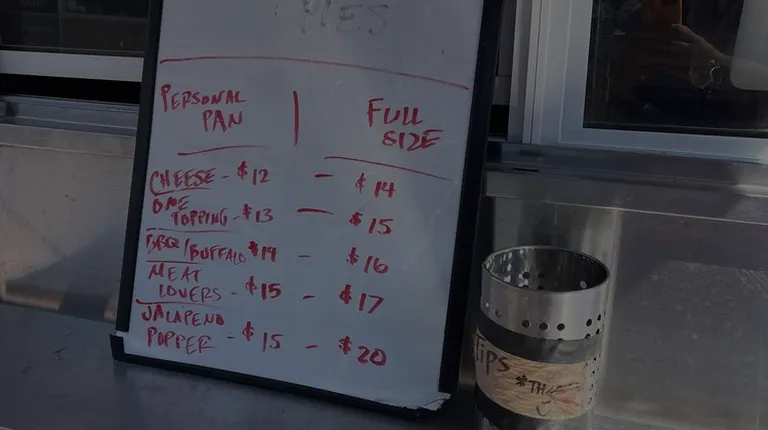 PERSONAL PAN | FULL SIZE
CHEESE - $12 - $14
ONE TOPPING - $13 - $15
BBQ/BUFFALO $14 - $16
MEAT LOVERS - $15 - $17
JALAPENO POPPER - $15 - $20
Tips